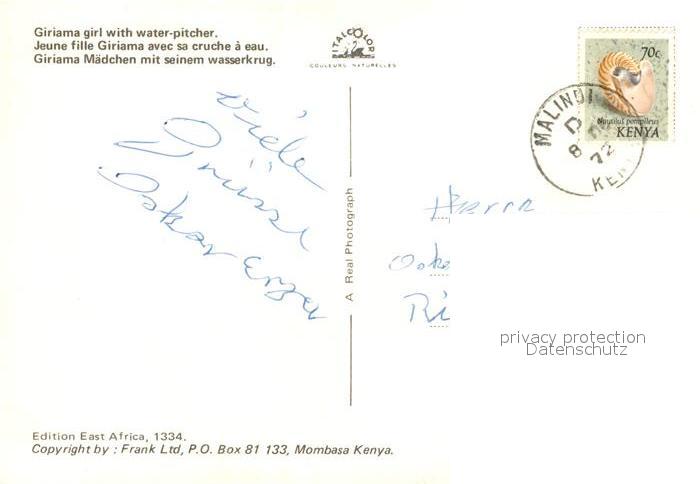 Giriama girl with water-pitcher.
Jeune fille Giriama avec sa cruche à eau.
Giriama Mädchen mit seinem wasserkrug.
ITALCOLOR
COULEURS NATURELLES
70c
Nautilus pompileus
KENYA
MALINDI
D
8
72
KEN
Viele
Grüsse
Oskar
A Real Photograph
Herrn
Oske
Ri
privacy protection
Datenschutz
Edition East Africa, 1334.
Copyright by : Frank Ltd, P.O. Box 81 133, Mombasa Kenya.